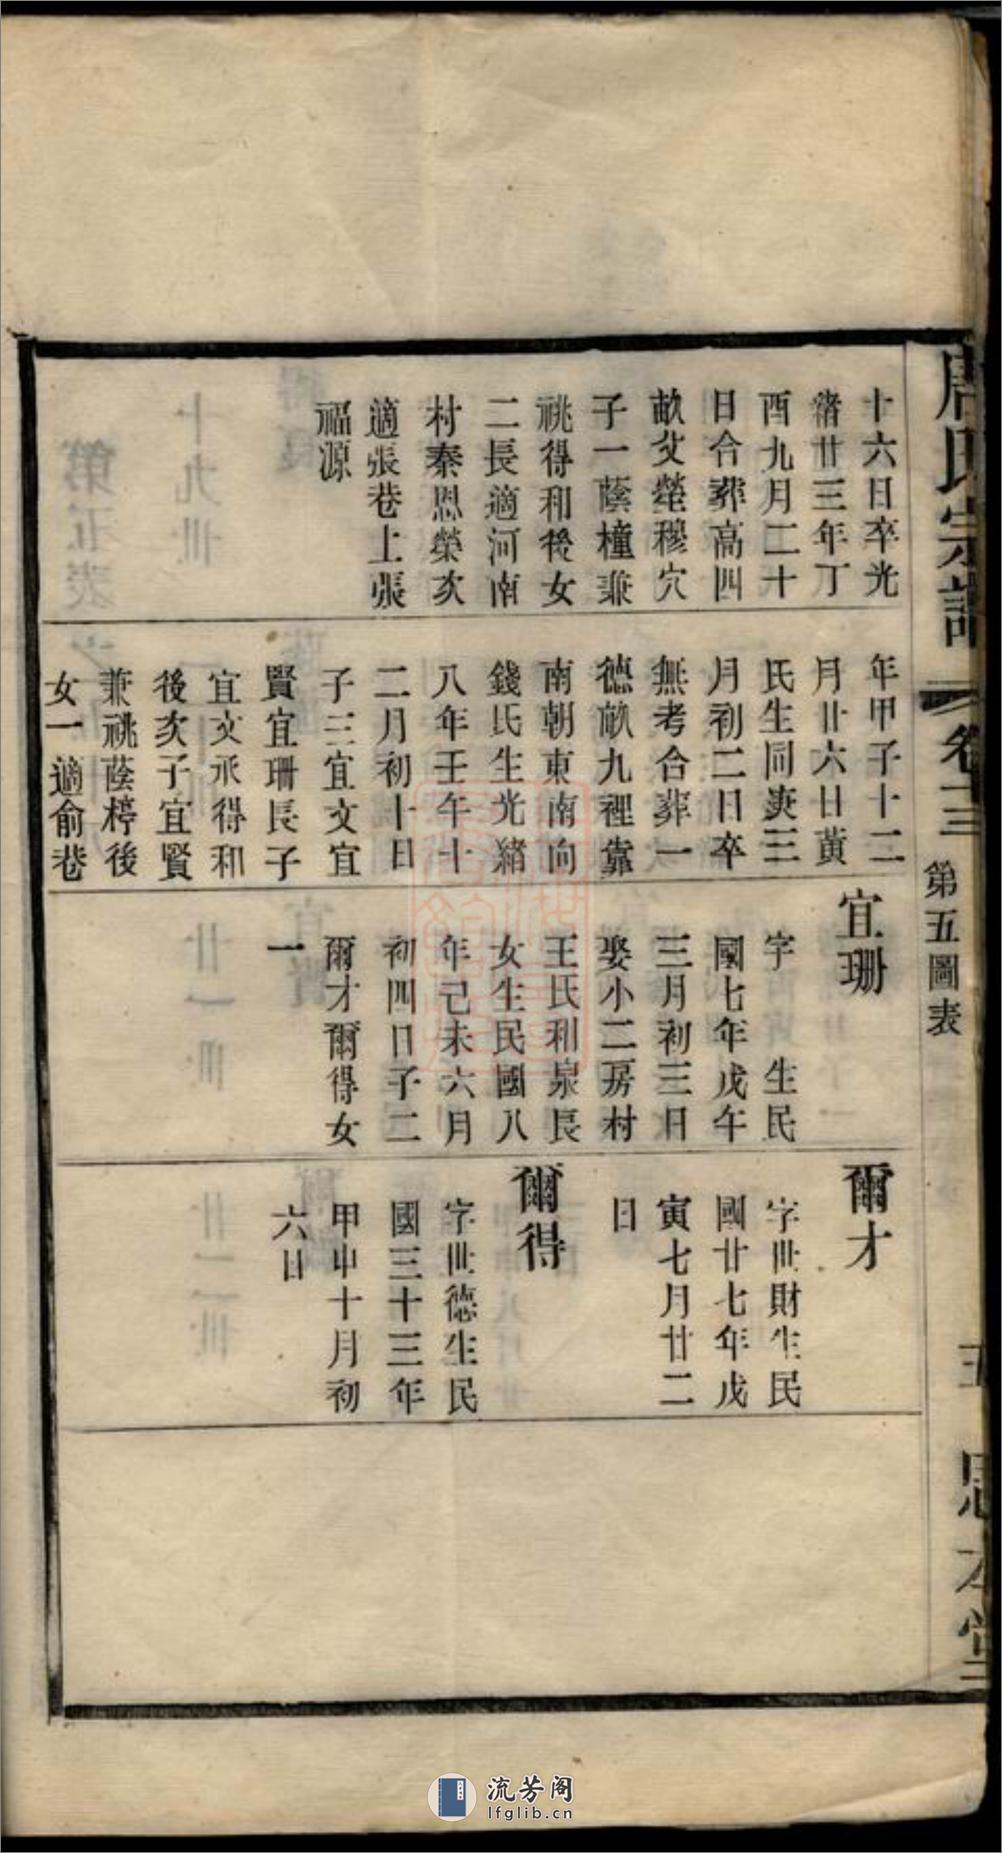 唐氏宗譜
卷三
第五圖表
五
思本堂
十六日卒光
緒廿三年丁
酉九月二十
日合葬高四
畝父塋穆穴
子一蔭橦兼
祧得和後女
二長適河南
村秦恩榮次
適張巷上張
福源
年甲子十二
月廿六日黃
氏生同庚三
月初二日卒
無考合葬一
德畝九裡靠
南朝東南向
錢氏生光緒
八年壬午十
二月初十日
子三宜文宜
賢宜珊長子
宜文承得和
後次子宜賢
兼祧蔭樗後
女一適俞巷
宜珊
字 生民
國七年戊午
三月初三日
娶小二房村
王氏和泉長
女生民國八
年己未六月
初四日子二
爾才爾得女
一
爾才
字世財生民
國廿七年戊
寅七月廿二
日
爾得
字世德生民
國三十三年
甲申十月初
六日
流芳阁
lfglib.cn